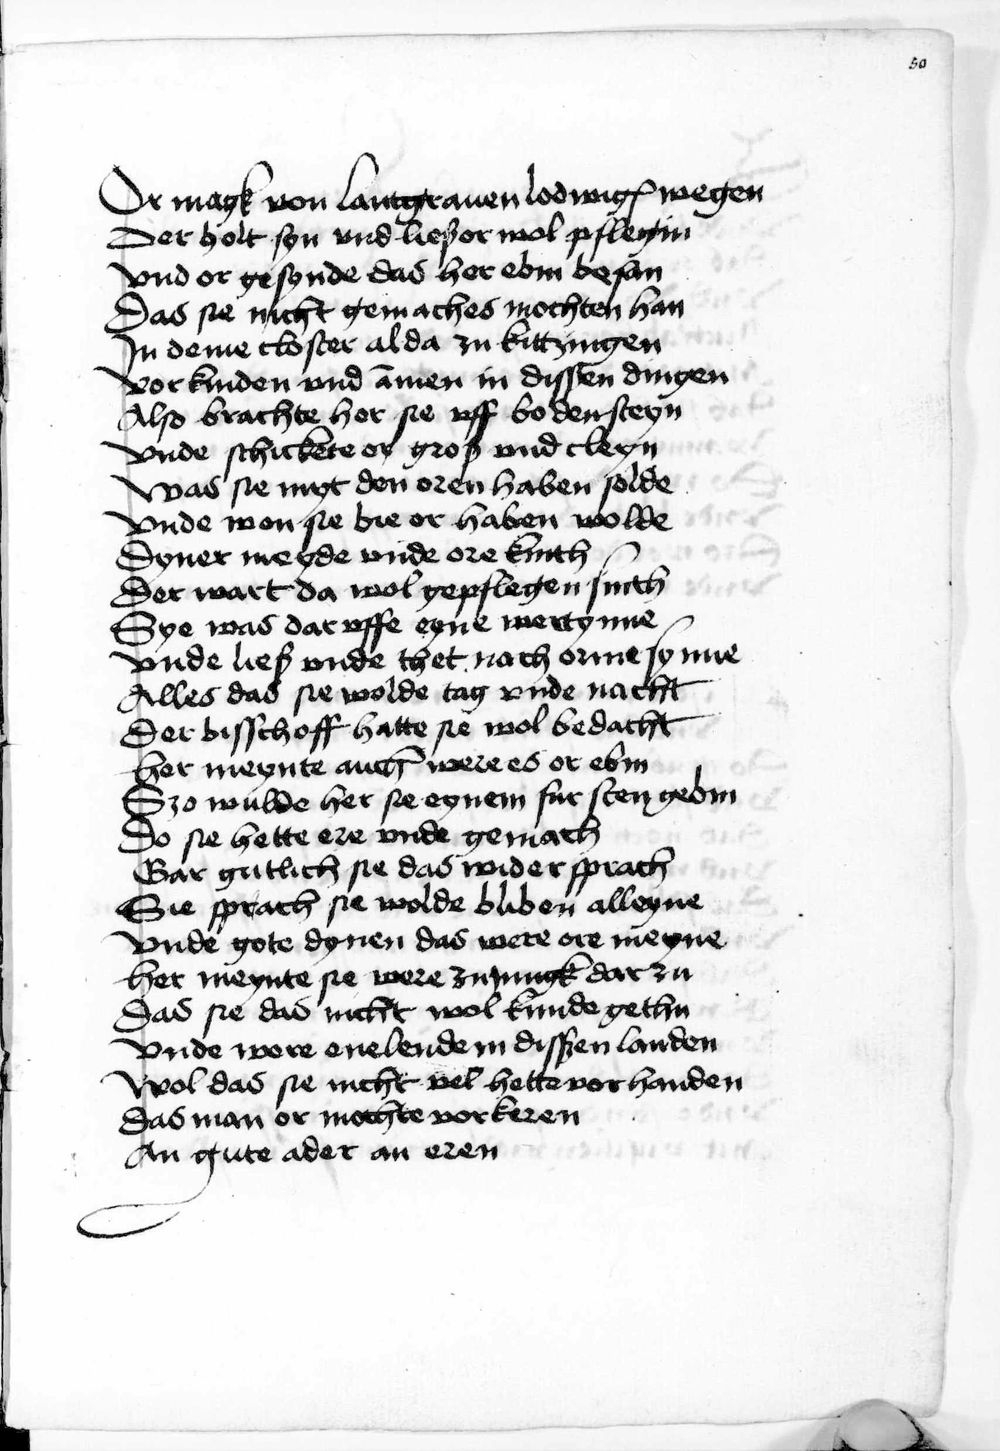 50
Or magk von lantgrauen lodwigs wegen
Der holt syn vnd ließ or wol pflegin
vnd or gesynde das her ebin besan
Das sie nicht gemaches mochten han
In deme closter alda zu kittzingen
vor kinden vnd āmen in dissen dingen
Also brachte her sie vff bodensteyn
vnde schickete or groß vnd cleyn
Was sie myt den oren haben solde
vnde wen sie bie or haben wolde
Dyner meyde vnde ore kinth
Der wart da wol gepflegen sinth
Sye was dar vffe eyne wertynne
vnde ließ vnde thet nach orme synne
Alles das sie wolde tag vnde nacht
Der bisschoff hatte sie wol bedacht
her meynte auch were es or ebin
Szo wulde her sie eynem fursten gebin
Do sie hette ere vnde gemach
Gar gutlich sie das widersprach
Sie sprach sie wolde bliben alleyne
vnde gote dynen das were ore meyne
her meynte sie were zu jungk dar zu
Das sie das nicht wol kunde gethu
vnde were enelende in disszen landen
Wol das sie nicht vel hette vorhanden
Das man or mochte vorkeren
An gute ader an eren